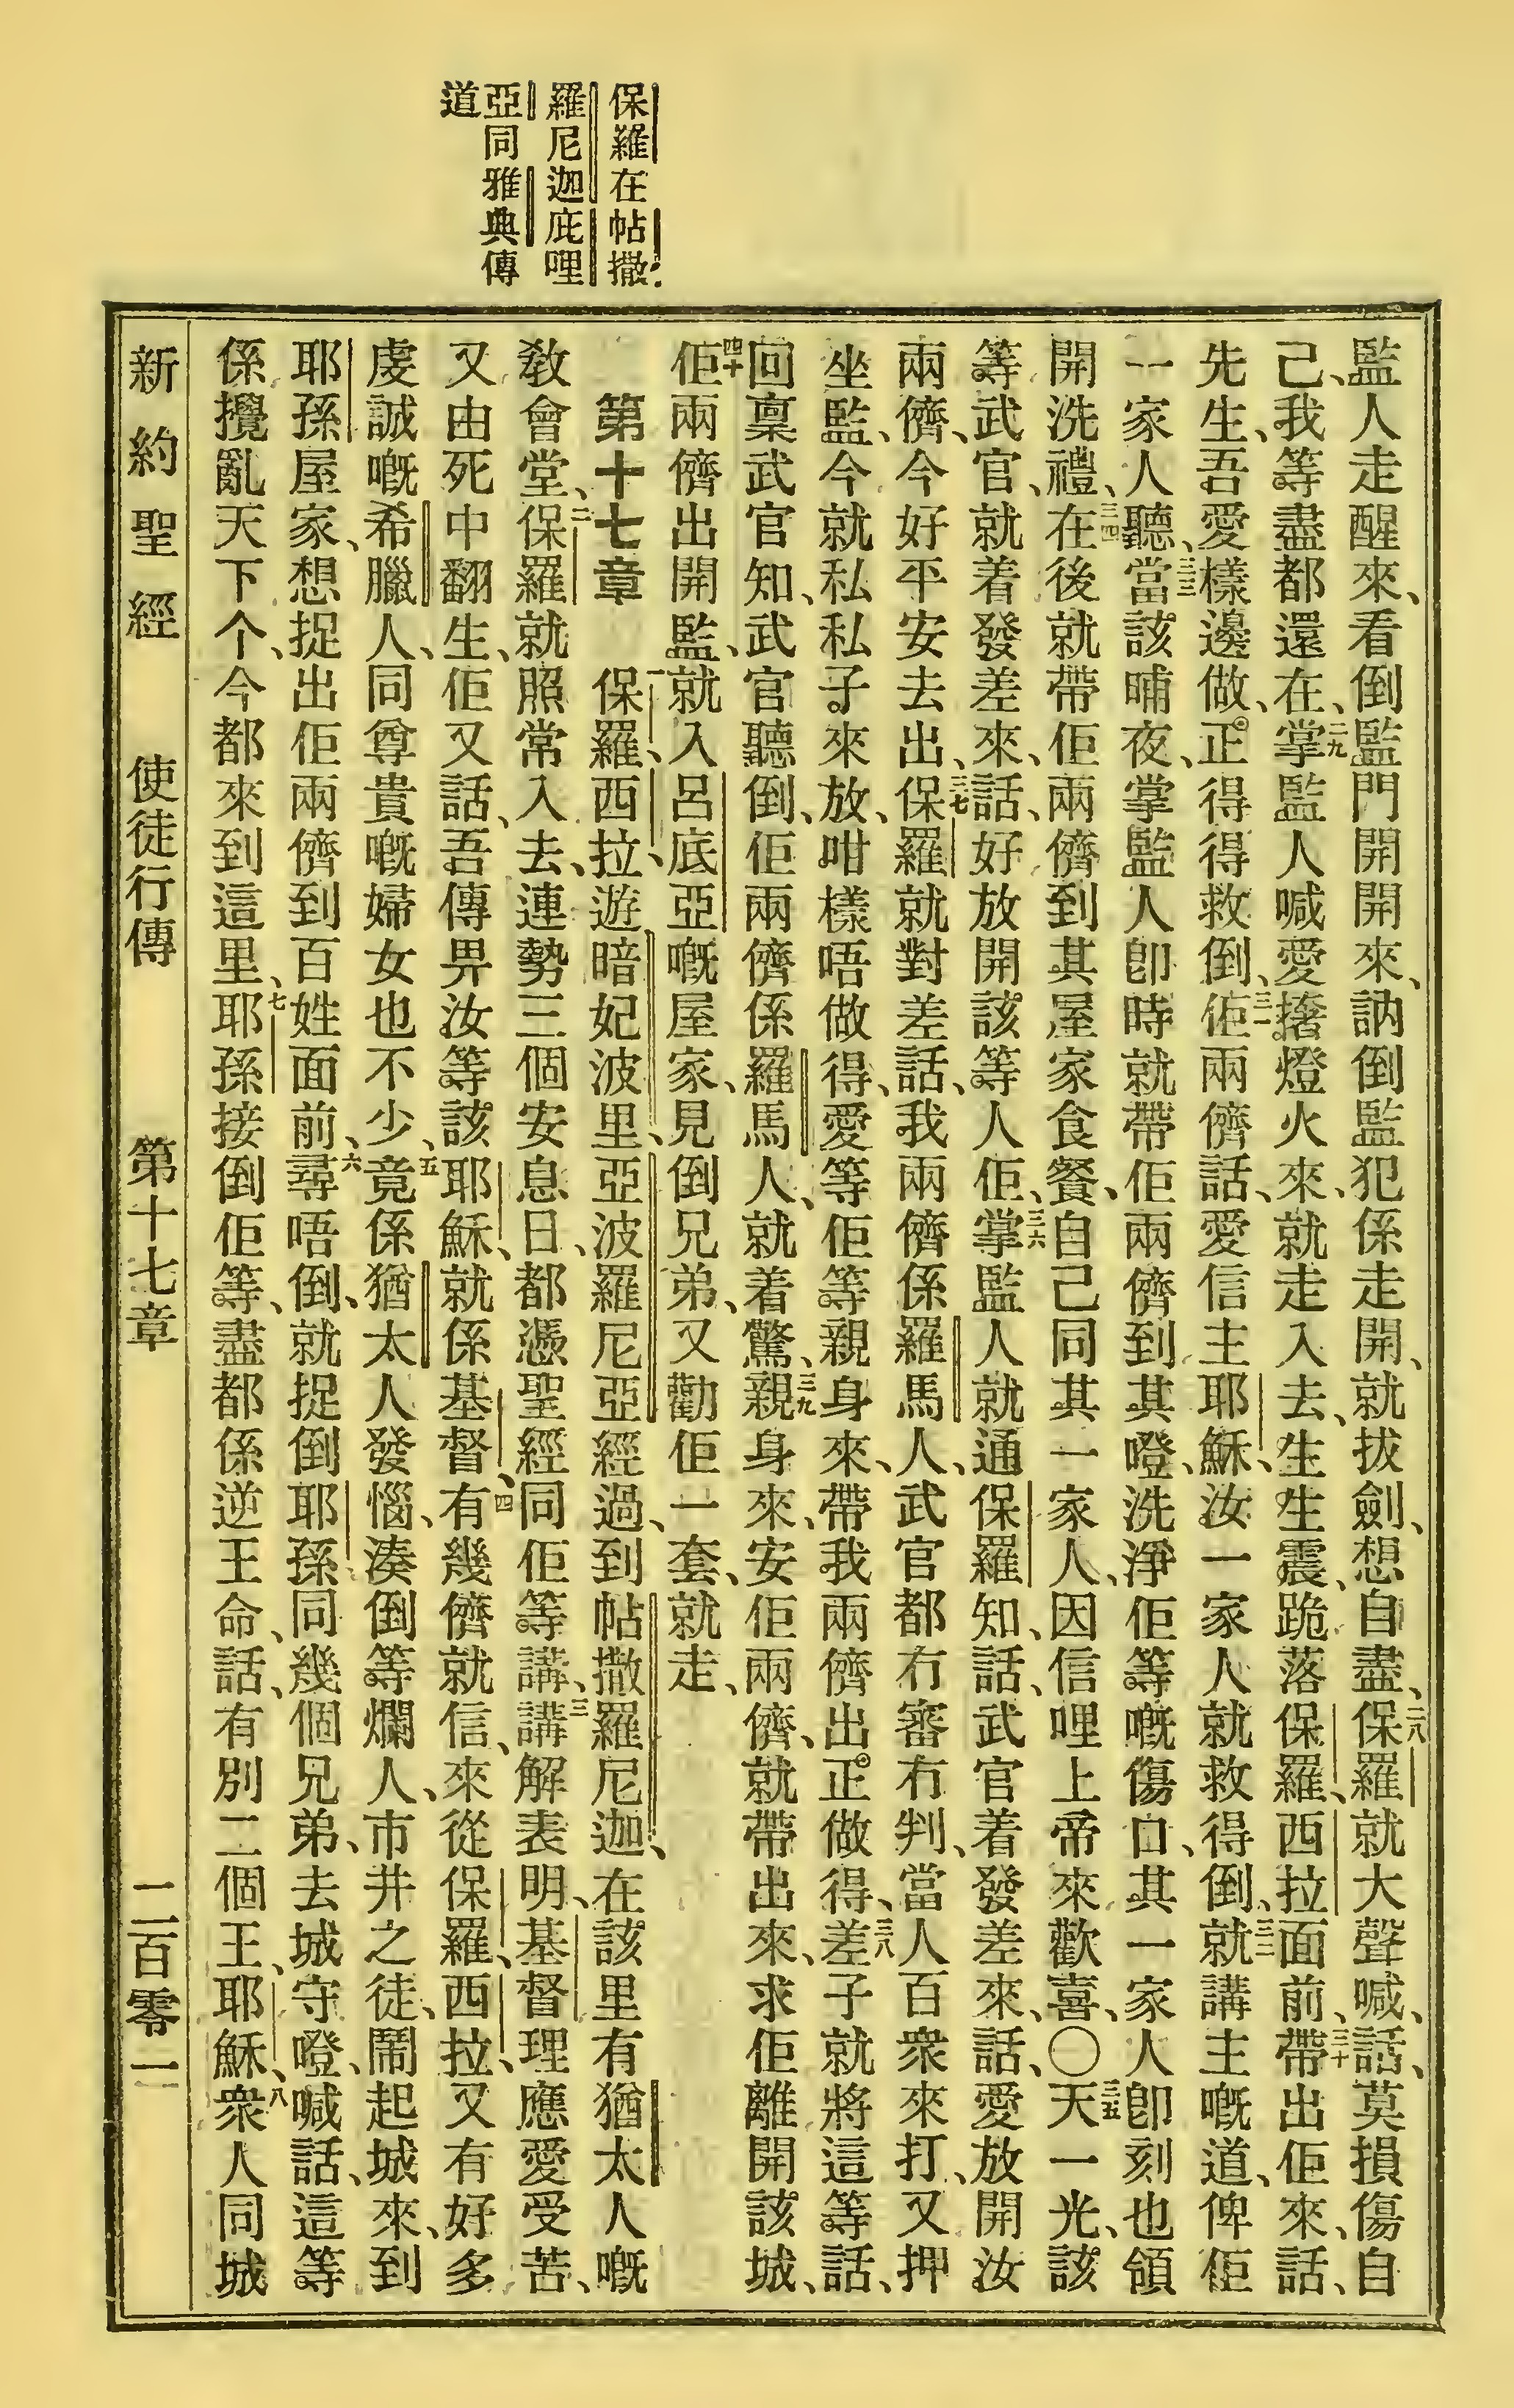 保羅在帖撒
羅尼迦庇哩
亞同雅典傳
道
監人走醒來、看倒監門開開來、訥倒監犯係走開、就拔劍、想自盡、二八保羅就大聲喊、話、莫損傷自
己、我等盡都還在、二九掌監人喊愛撦燈火來、就走入去、生生震、跪落保羅、西拉面前、三十帶出佢來、話、
先生、吾愛樣邊做、正得得救倒、三一佢兩儕話、愛信主耶穌、汝一家人就救得倒、三二就講主嘅道、俾佢
一家人聽、三三當該晡夜、掌監人卽時就帶佢兩儕到其嶝、洗淨佢等嘅傷口、其一家人卽刻也領
開洗禮、三四在後就帶佢兩儕到其屋家食餐、自己同其一家人、因信哩上帝來歡喜、〇三五天一光、該
等武官、就着發差來、話、好放開該等人佢、三六掌監人就通保羅知、話、武官着發差來、話、愛放開汝
兩儕、今好平安去出、三七保羅就對差話、我兩儕係羅馬人、武官都冇審冇判、當人百衆來打、又押
坐監、今就私私子來放、咁樣唔做得、愛等佢等親身來、帶我兩儕出正做得、三八差子就將這等話、
回稟武官知、武官聽倒、佢兩儕係羅馬人、就着驚、三九親身來、安佢兩儕、就帶出來、求佢離開該城、
四十佢兩儕出開監、就入呂底亞嘅屋家、見倒兄弟、又勸佢一套、就走、
第十七章　一保羅、西拉、遊暗妃波里、亞波羅尼亞經過、到帖撒羅尼迦、在該里有猶太人嘅
敎會堂、二保羅就照常入去、連勢三個安息日、都憑聖經同佢等講、三講解表明、基督理應愛受苦、
又由死中翻生、佢又話、吾傳畀汝等該耶穌、就係基督、四有幾儕就信、來從保羅、西拉、又有好多
虔誠嘅希臘人、同尊貴嘅婦女也不少、五竟係猶太人發惱、湊倒等爛人、市井之徒、鬧起城來、到
耶孫屋家、想捉出佢兩儕到百姓面前、六尋唔倒、就捉倒耶孫同幾個兄弟、去城守嶝、喊話、這等
係攪亂天下个、今都來到這里、七耶孫接倒佢等、盡都係逆王命、話、有別二個王、耶穌、八衆人同城
新約聖經　使徒行傳　第十七章　二百零一